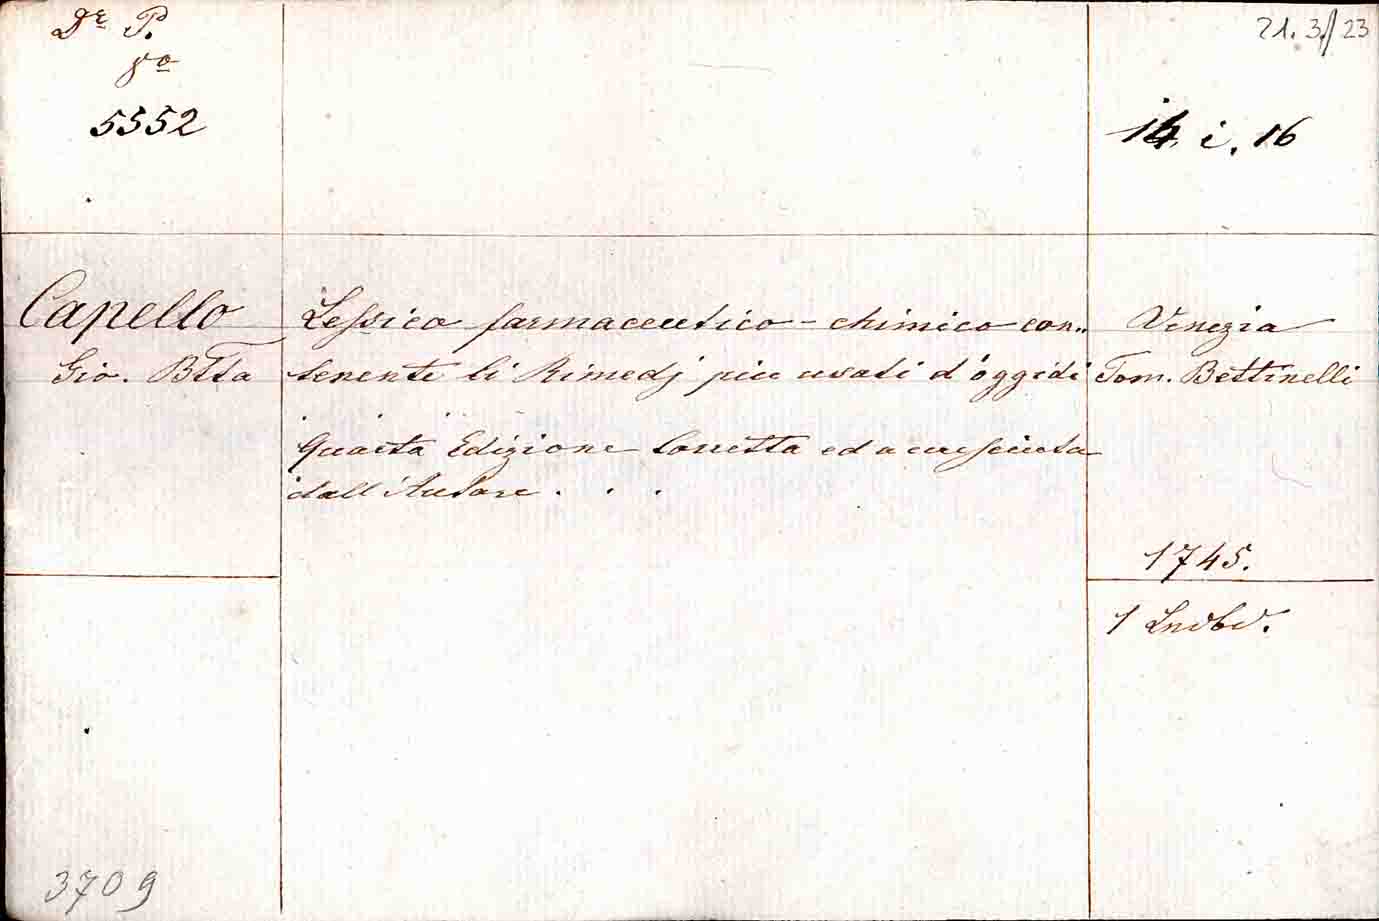 Dr P.
8o
5552
21. 3./23
14 i. 16
Capello
Gio. Btta
Lessico farmaceutico-chimico con-
tenente li Rimedj piu usati d'oggidi
Quarta Edizione Corretta ed accresciuta
dall'Autore . . .
Venezia
Tom. Bettinelli
1745.
1 Lndbd.
3709